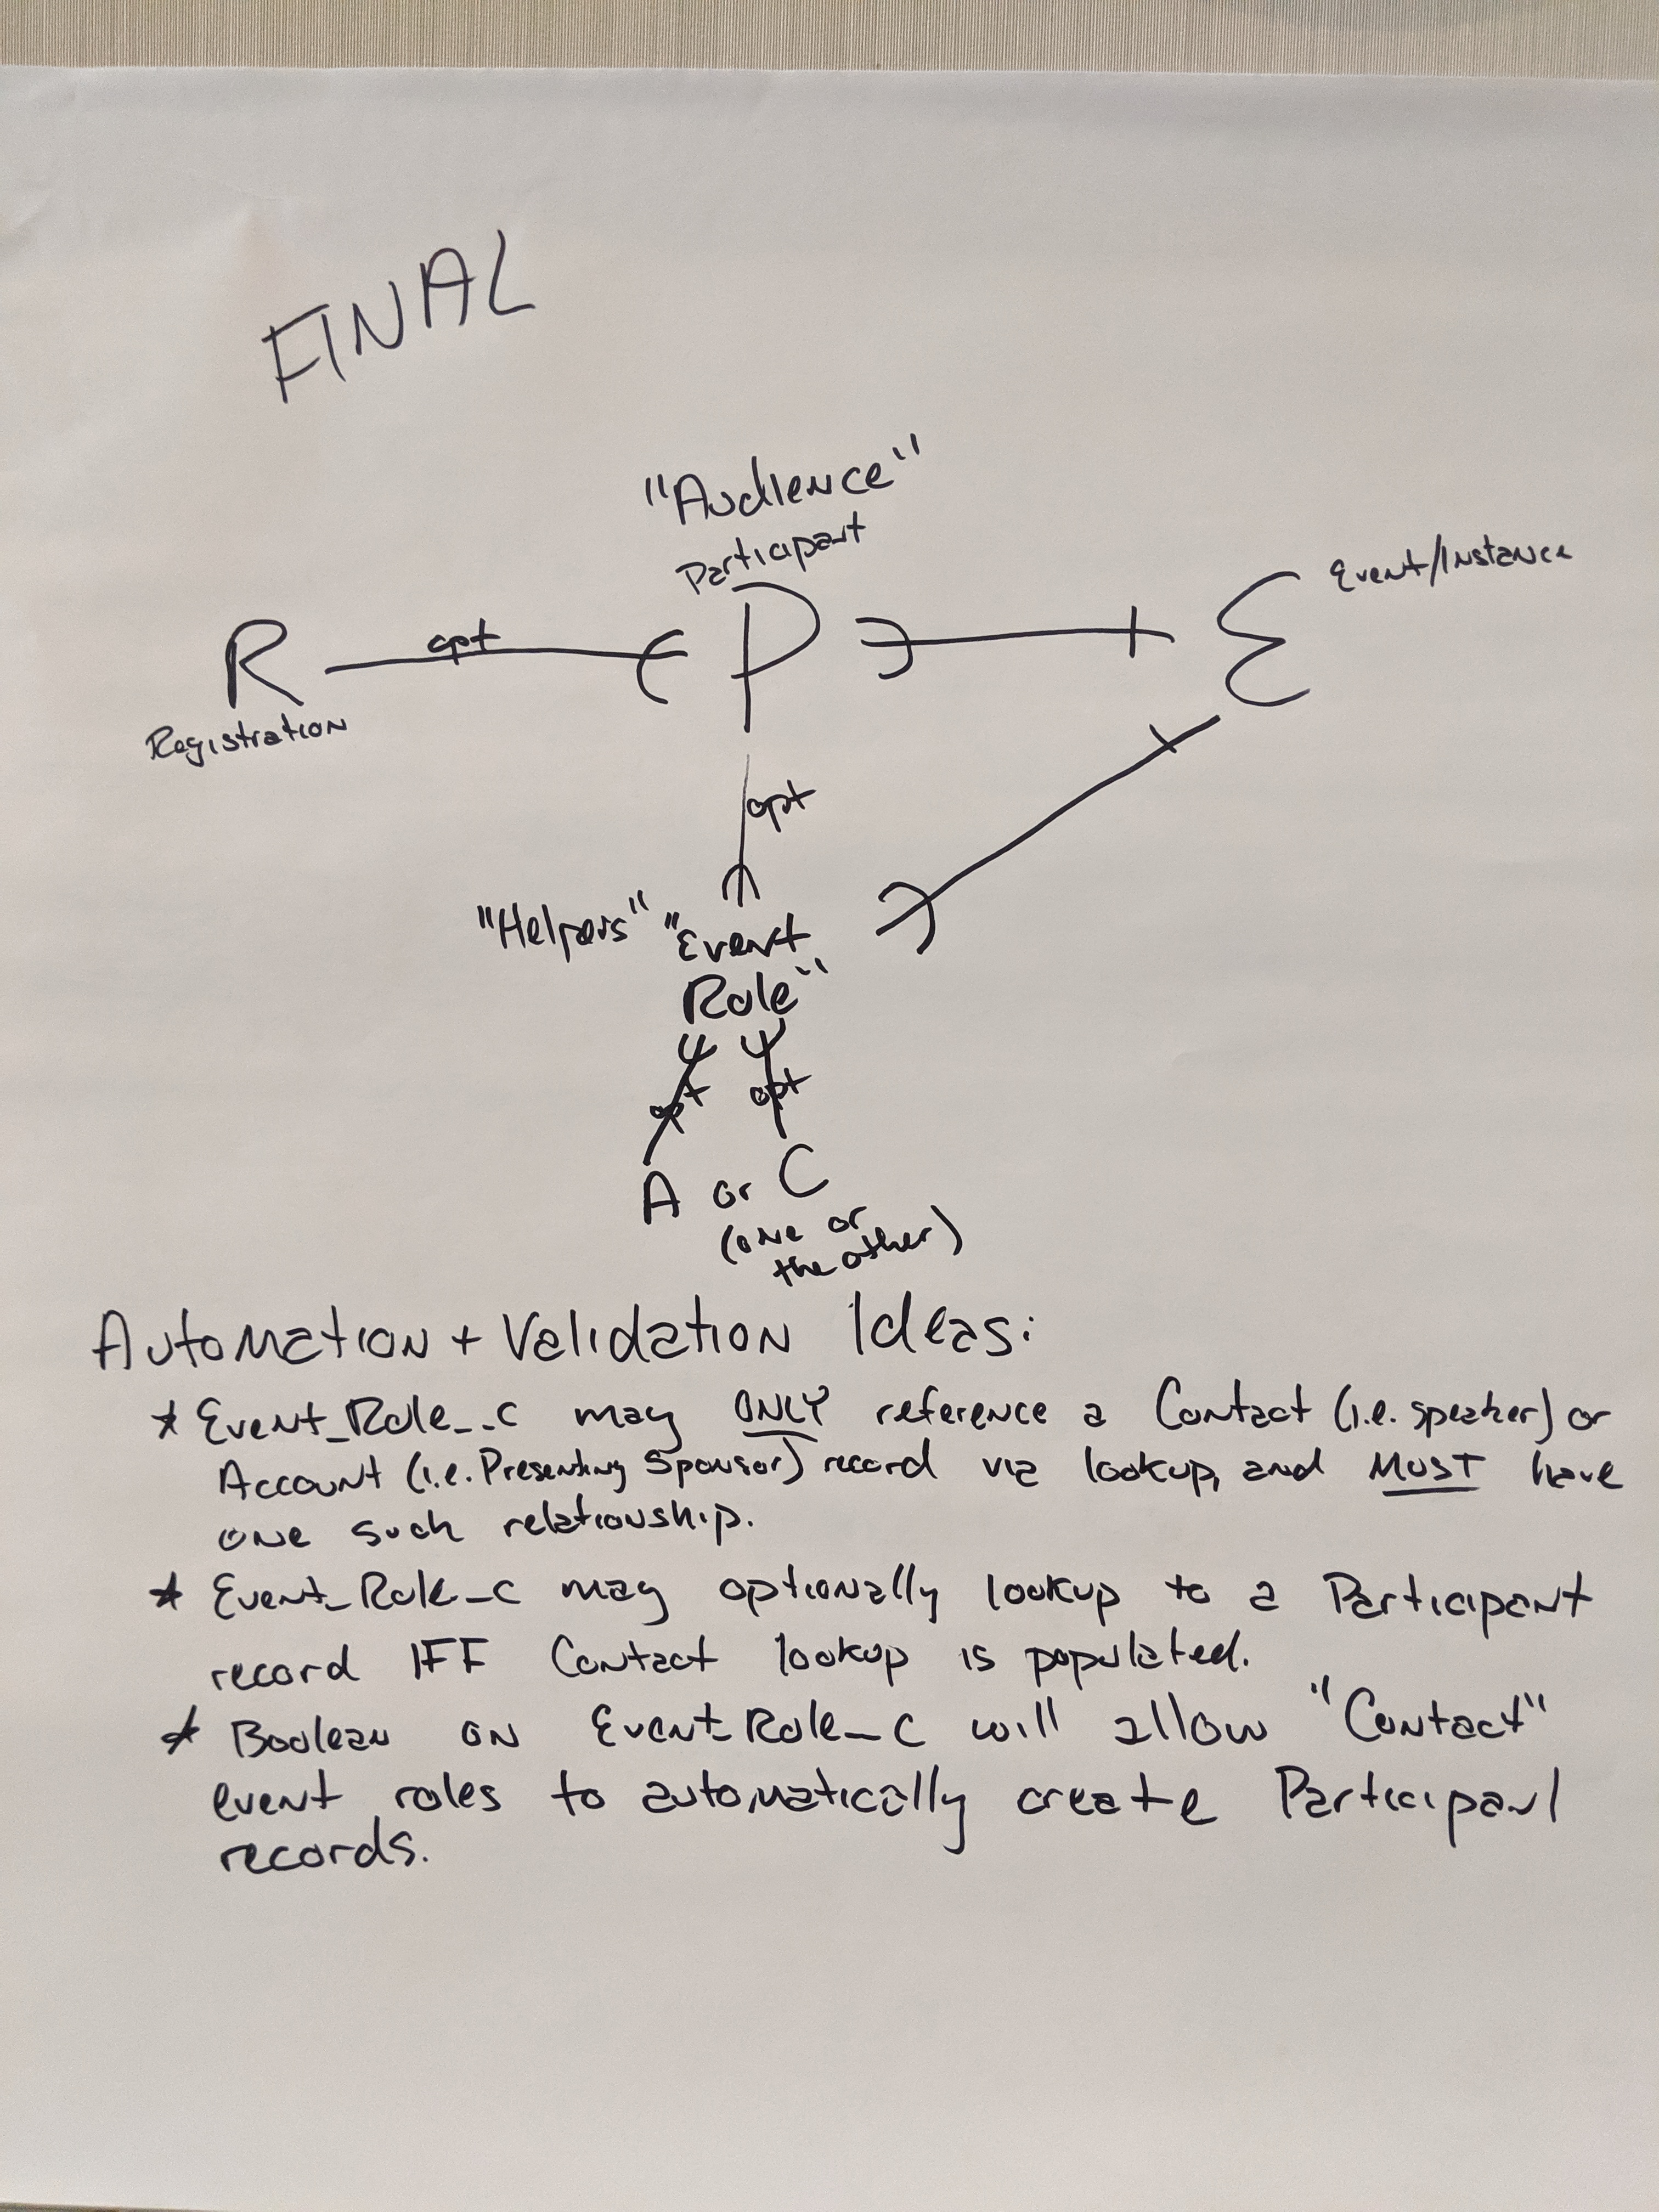 FINAL
"Audience"
Participant
Event/Instance
R opt P E
Registration
opt
"Helpers" "Event
Role"
opt opt
A or C
(one or
the other)
Automation + Validation Ideas:
* Event_Role__c may ONLY reference a Contact (i.e. speaker) or
Account (i.e. Presenting Sponsor) record via lookup, and MUST have
one such relationship.
* Event_Role_c may optionally lookup to a Participant
record IFF Contact lookup is populated.
* Boolean on Event_Role_c will allow "Contact"
event roles to automatically create Participant
records.